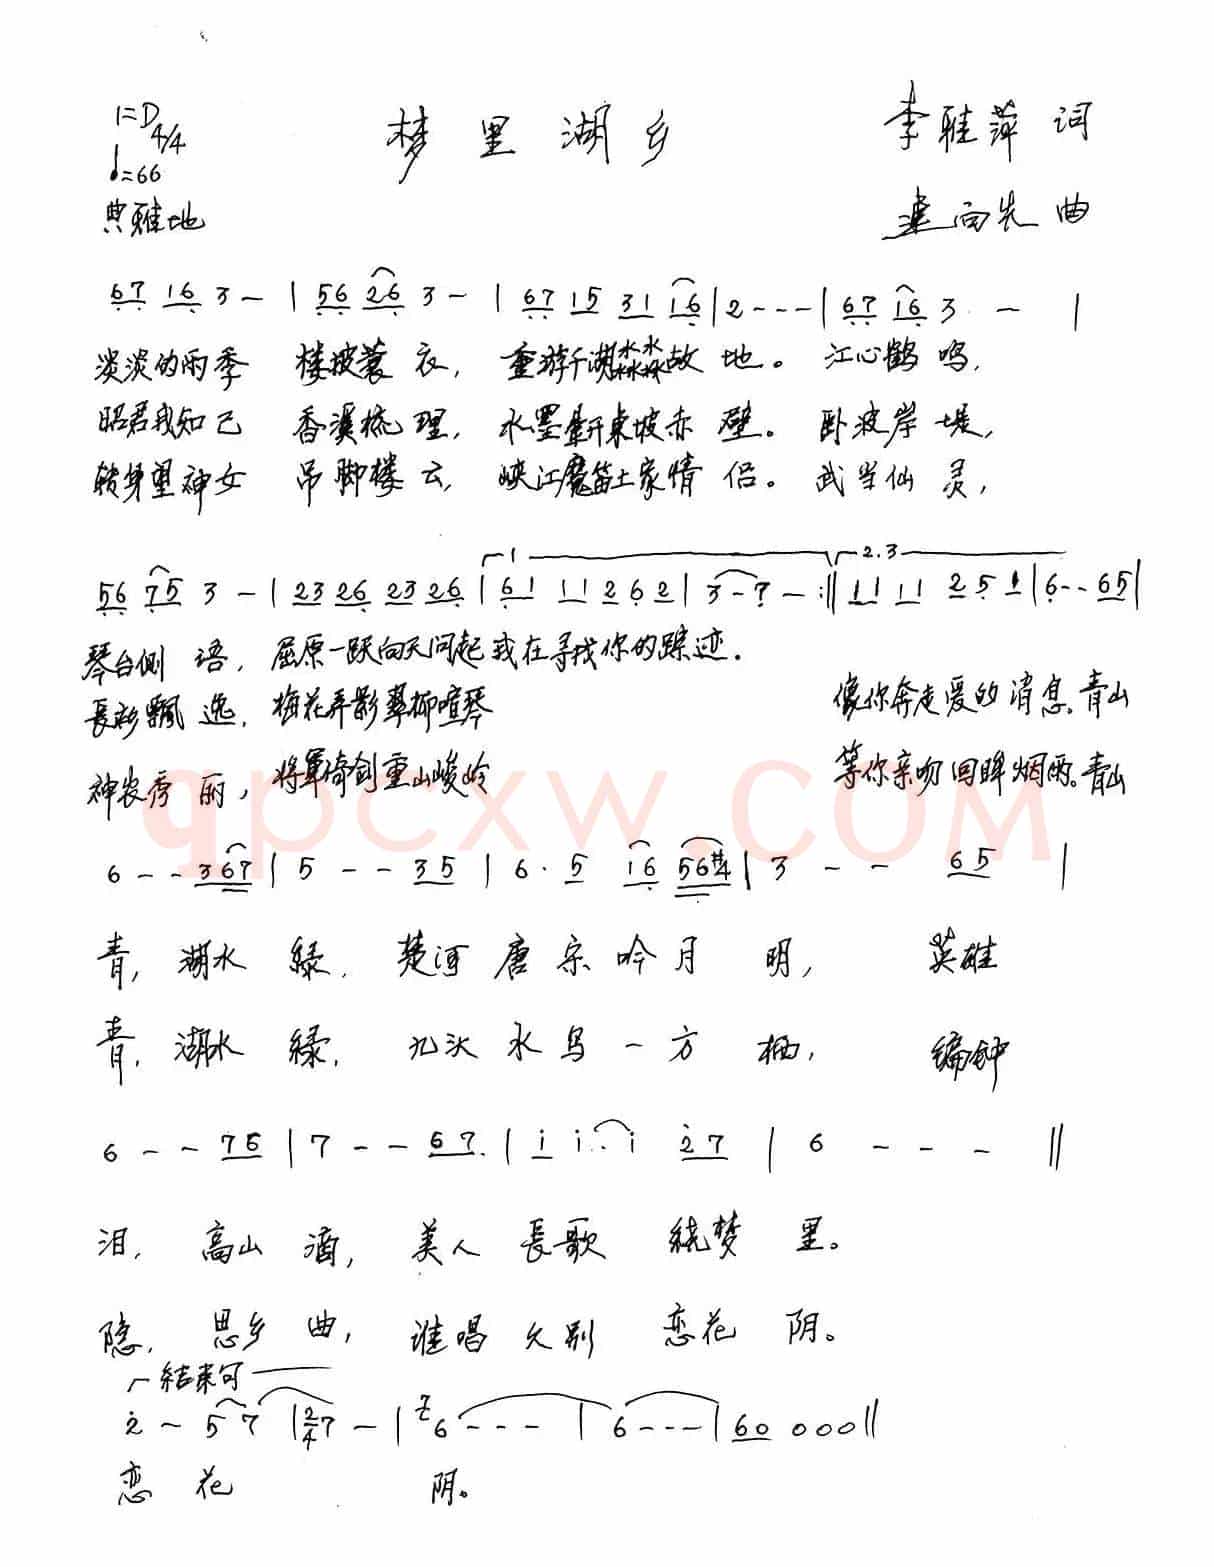 1=D 4/4
梦里湖乡
李雅萍 词
♩=66
典雅地
向先 曲
67 16 3 - | 56 26 3 - | 67 15 31 16 | 2 - - - | 67 16 3 · - |
淡淡的雨季 楼披蓑衣, 重游千湖淼淼故地。 江心鹤鸣,
昭君我知己 香溪梳理, 水墨晕开东坡赤壁。 卧波岸堤,
转身望神女 吊脚楼云, 峡江魔笛土家情侣。 武当仙灵,
1 2.3
56 75 3 - | 23 26 23 26 | 61 11 262 | 3 - 7 - :|| 11 11 251 | 6 - - 65 |
琴台侧语, 屈原一跃向天问起我在寻找你的踪迹.
長衫飘逸, 梅花弄影翠柳喧琴 像你奔走爱的消息。青山
神农秀丽, 将軍倚剑重山峻岭 等你亲吻回眸烟雨。青山
6 - - 367 | 5 - - 35 | 6 · 5 16 56#4 | 3 - - 65 |
青, 湖水 緑. 楚河唐宗吟月明, 英雄
青, 湖水 緑. 九头水鸟一方栖, 编钟
6 - - 76 | 7 - - 67 · | i i · · i 27 | 6 - - - ||
泪, 高山酒, 美人長歌 绕梦里。
隐, 思乡曲, 谁唱久别 恋花阴。
结束句
2 - 5 7 | 2/4 7 - | 7 6 - - - | 6 - - - | 60 000 ||
恋花 阴。
qpcxw.COM